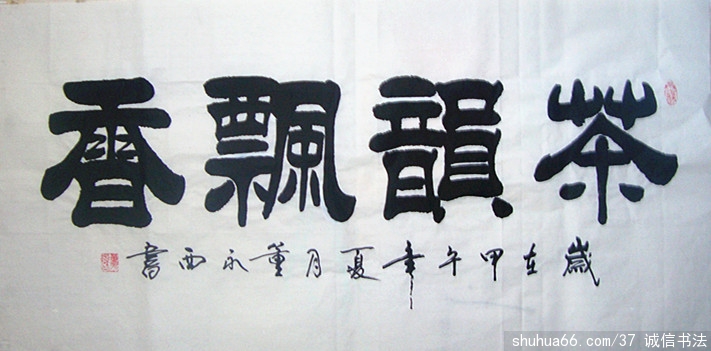 茶韻飄香
歲在甲午年夏月董永西書
shuhua66.com/37 诚信书法